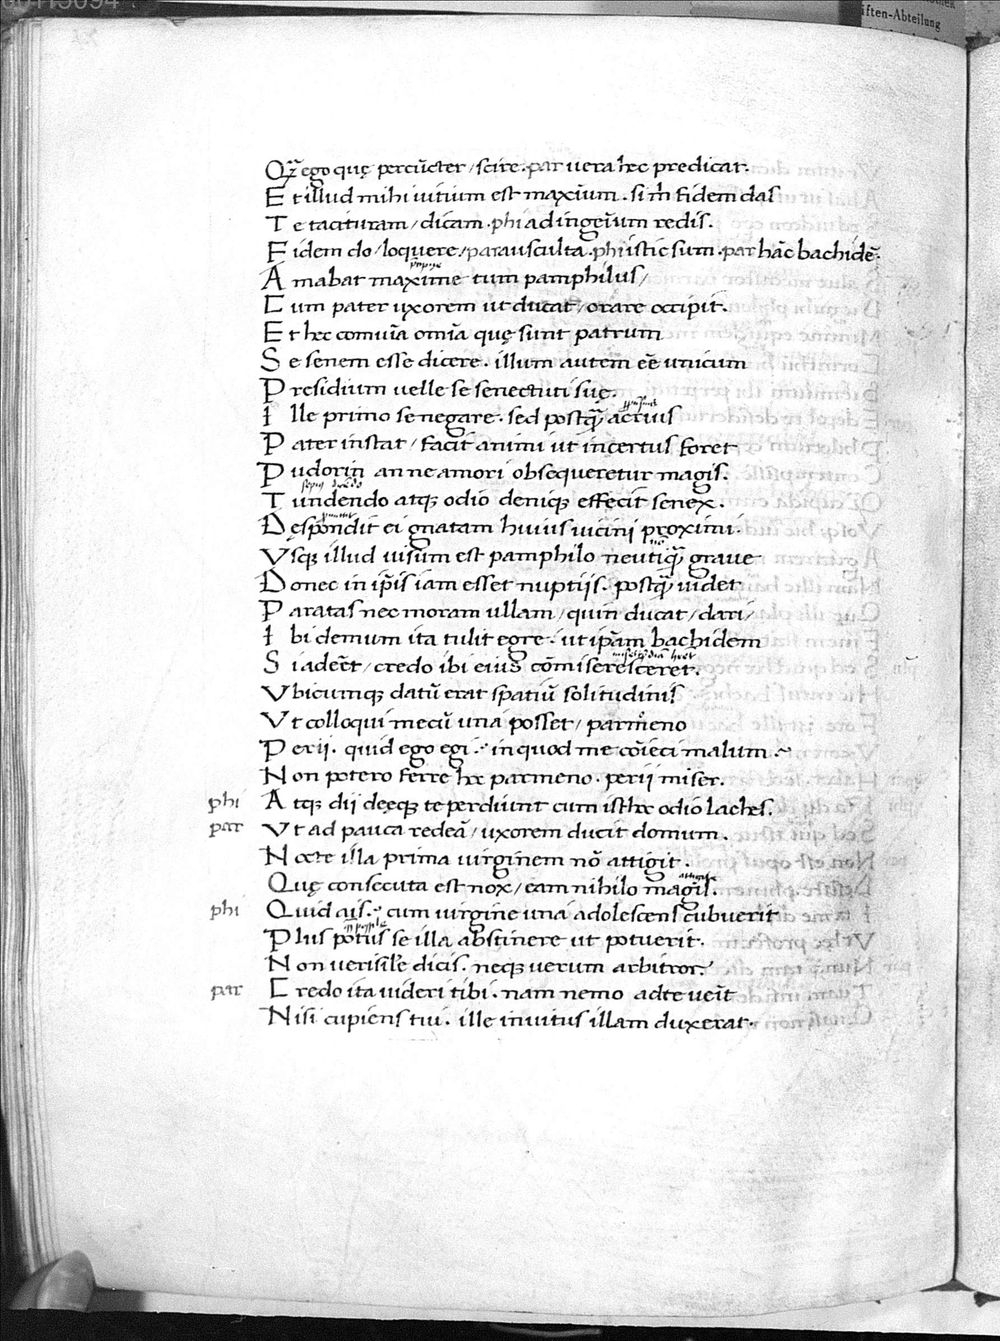 ften-Abteilung
Qꝫ ego quę percūcter / scire · par uera hec predicat ·
Et illud mihi uitium est maxĩum · si m̃ fidem das
Te tacituram / dicam · phi ad ingeĩum redis ·
Fidem do / loquere / par ausculta · phi istic sum · par hãc bachidẽ ·
Amabat maxime tum pamphilus /
Cum pater uxorem ut ducat / orare occipit ·
Et hec comuĩa omĩa quę sunt patrum
Se senem esse dicere · illum autem eẽ unicum
Presidium uelle se senectuti suę ·
Ille primo se negare · sed postq̃ acrius
Pater instat / facit animi ut incertus foret
Pudorin anne amori obsequeretur magis ·
Tundendo atqꝫ odio deniqꝫ effecit senex ·
Despondit ei gnatam huius uicini proximi ·
Vsqꝫ illud uisum est pamphilo neutiq̃ graue
Donec in ip̃is iam esset nuptijs · postq̃ uidet
Paratas nec moram ullam / quin ducat / dari /
Ibi demum ita tulit egre · ut ip̃am bachidem
Si adeẽt / credo ibi eius cõmiseresceret ·
Vbicumqꝫ datũ erat spatiũ solitudinis
Vt colloqui mecũ una posset / parmeno
Perii · quid ego egi · in quod me cõieci malum
Non potero ferre hec parmeno · perii miser ·
phi Atqꝫ dij deęqꝫ te perduint cum isthec odio laches ·
par Vt ad pauca redeã / uxorem ducit domum ·
Nocte illa prima uirginem nõ attigit ·
Quę consecuta est nox / eam nihilo magis ·
phi Quid ais · cum uirgine una adolescens cubuerit
Plus potus se illa abstinere ut potuerit ·
Non uerisile dicis · neqꝫ uerum arbitror ·
par Credo ita uideri tibi · nam nemo ad te ueĩt
Nisi cupiens tui · ille inuitus illam duxerat ·